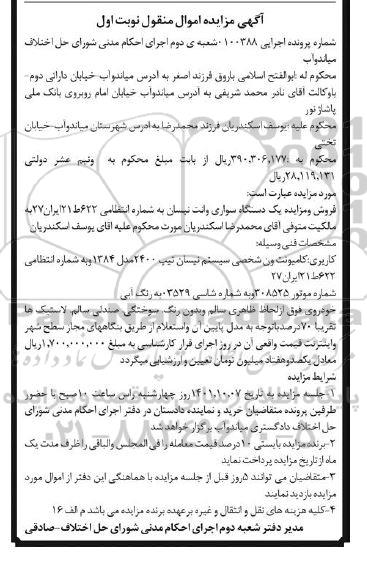 آگهی مزایده اموال منقول نوبت اول
شماره پرونده اجرایی ۰۱۰۰۳۸۸شعبه ی دوم اجرای احکام مدنی شورای حل اختلاف
میاندوآب
محکوم له :ابوالفتح اسلامی باروق فرزند اصغر به آدرس میاندوآب-خیابان دارائی دوم-
باوکالت آقای نادر محمد شریفی به آدرس میاندوآب خیابان امام روبروی بانک ملی
پاساژ نور
محکوم علیه :یوسف اسکندریان فرزند محمدرضا به آدرس شهرستان میاندوآب-خیابان
تختی
محکوم به :۳۹۰,۳۰۶,۱۷۷ریال از بابت مبلغ محکوم به ونیم عشر دولتی
۲۸,۱۱۹,۱۳۱ریال
مورد مزایده عبارت است:
فروش ومزایده یک دستگاه سواری وانت نیسان به شماره انتظامی ۶۲۲ط۲۱ایران۲۷به
مالکیت متوفی آقای محمدرضا اسکندریان مورث محکوم علیه اقای یوسف اسکندریان
مشخصات فنی وسیله:
کاربری:کامیونت ون شخصی سیستم نیسان تیپ ۲۴۰۰مدل ۱۳۸۴وبه شماره انتظامی
۶۲۲ط۲۱ایران۲۷
شماره موتور ۳۰۸۵۲۵وبه شماره شاسی ۰۳۵۲۹به رنگ آبی
خودروی فوق ازلحاظ ظاهری سالم وبدون رنگ سوختگی صندلی سالم، لاستیک ها
تقریبا ۷۰درصدباتوجه به مدل پایین آن واستعلام از طریق بنگاههای مجاز سطح شهر
واینترنت قیمت واقعی آن در روز اجرای قرار کارشناسی به مبلغ ۱,۷۰۰,۰۰۰,۰۰۰ریال
معادل یکصدوهفتاد میلیون تومان تعیین و ارزشیابی میگردد
شرایط مزایده
۱-جلسه مزایده به تاریخ ۱۴۰۱,۱۰,۰۷روز چهارشنبه راس ساعت ۱۰صبح با حضور
طرفین پرونده متقاضیان خرید و نماینده دادستان در دفتر اجرای احکام مدنی شورای
حل اختلاف دادگستری میاندوآب برگزار خواهد شد
۲-برنده مزایده بایستی ۱۰درصد قیمت معامله را فی المجلس والباقی را ظرف مدت یک
ماه از تاریخ مزایده پرداخت نماید
۳-متقاضیان می توانند ۵روز قبل از جلسه مزایده با هماهنگی این دفتر از اموال مورد
مزایده بازدید نمایند
۴-کلیه هزینه های نقل و انتقال و غیره برعهده برنده مزایده می باشد م الف ۱۶
مدیر دفتر شعبه دوم اجرای احکام مدنی شورای حل اختلاف-صادقی